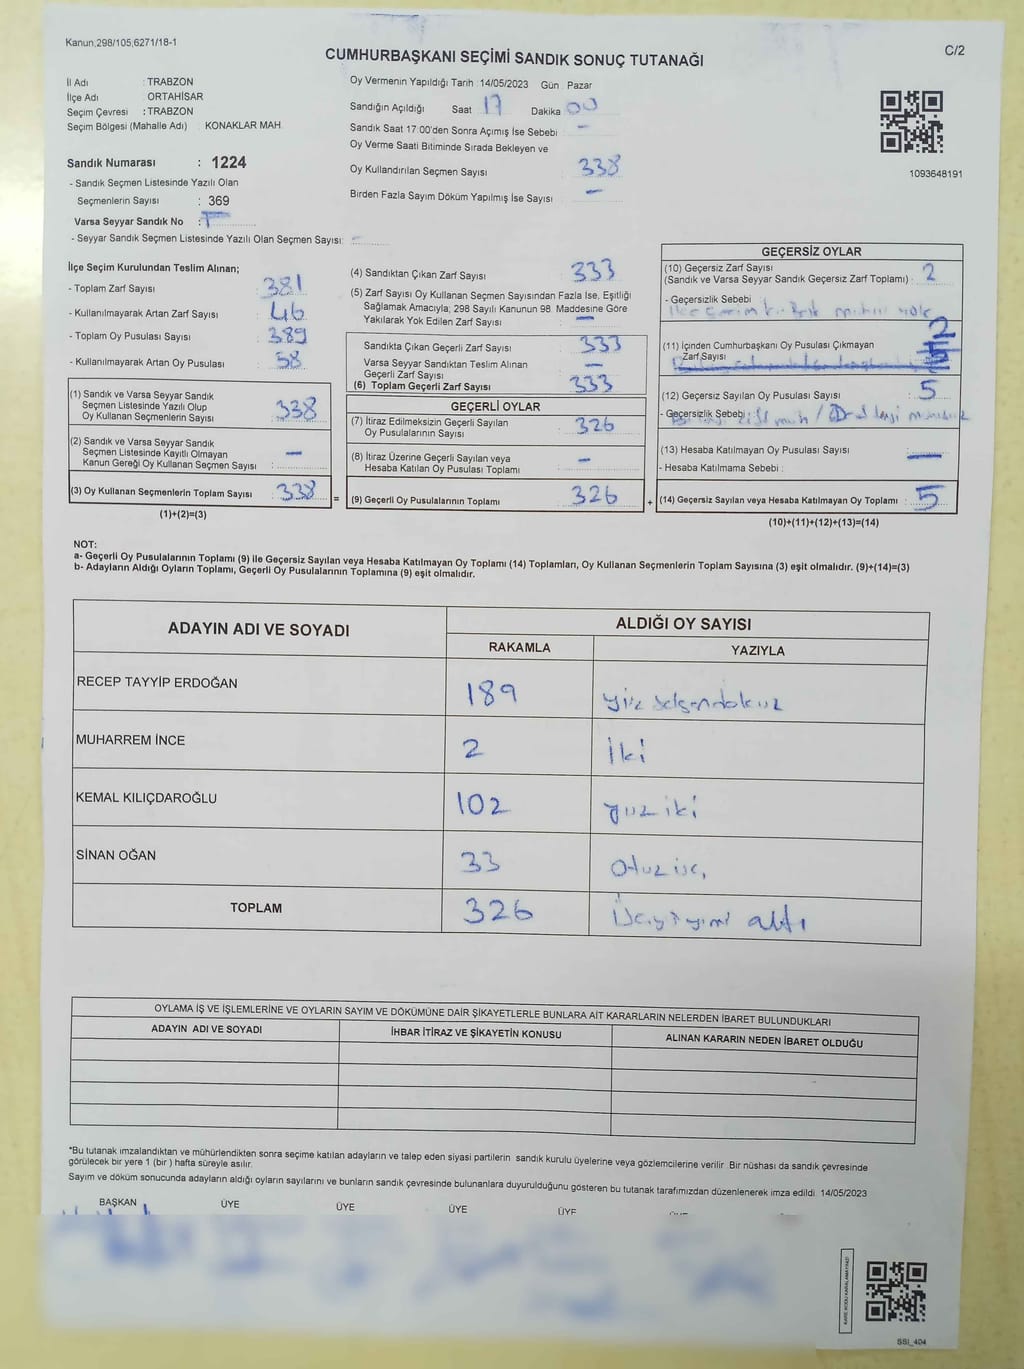 Kanun;298/105;6271/18-1
C/2
CUMHURBAŞKANI SEÇİMİ SANDIK SONUÇ TUTANAĞI
İl Adı : TRABZON
İlçe Adı : ORTAHİSAR
Seçim Çevresi : TRABZON
Seçim Bölgesi (Mahalle Adı) : KONAKLAR MAH.
Sandık Numarası : 1224
- Sandık Seçmen Listesinde Yazılı Olan
Seçmenlerin Sayısı : 369
Varsa Seyyar Sandık No :
- Seyyar Sandık Seçmen Listesinde Yazılı Olan Seçmen Sayısı: -
Oy Vermenin Yapıldığı Tarih : 14/05/2023 Gün : Pazar
Sandığın Açıldığı Saat 17 Dakika 00
Sandık Saat 17:00'den Sonra Açımış İse Sebebi : -
Oy Verme Saati Bitiminde Sırada Bekleyen ve
Oy Kullandırılan Seçmen Sayısı : 338
Birden Fazla Sayım Döküm Yapılmış İse Sayısı : -
1093648191
İlçe Seçim Kurulundan Teslim Alınan;
- Toplam Zarf Sayısı : 381
- Kullanılmayarak Artan Zarf Sayısı : 46
- Toplam Oy Pusulası Sayısı : 389
- Kullanılmayarak Artan Oy Pusulası : 58
(1) Sandık ve Varsa Seyyar Sandık
Seçmen Listesinde Yazılı Olup
Oy Kullanan Seçmenlerin Sayısı : 338
(2) Sandık ve Varsa Seyyar Sandık
Seçmen Listesinde Kayıtlı Olmayan
Kanun Gereği Oy Kullanan Seçmen Sayısı : -
(3) Oy Kullanan Seçmenlerin Toplam Sayısı : 338
(1)+(2)=(3)
=
(4) Sandıktan Çıkan Zarf Sayısı : 333
(5) Zarf Sayısı Oy Kullanan Seçmen Sayısından Fazla İse, Eşitliği
Sağlamak Amacıyla; 298 Sayılı Kanunun 98. Maddesine Göre
Yakılarak Yok Edilen Zarf Sayısı : -
Sandıkta Çıkan Geçerli Zarf Sayısı : 333
Varsa Seyyar Sandıktan Teslim Alınan
Geçerli Zarf Sayısı : -
(6) Toplam Geçerli Zarf Sayısı : 333
GEÇERLİ OYLAR
(7) İtiraz Edilmeksizin Geçerli Sayılan
Oy Pusulalarının Sayısı : 326
(8) İtiraz Üzerine Geçerli Sayılan veya
Hesaba Katılan Oy Pusulası Toplamı : -
(9) Geçerli Oy Pusulalarının Toplamı : 326
+
GEÇERSİZ OYLAR
(10) Geçersiz Zarf Sayısı
(Sandık ve Varsa Seyyar Sandık Geçersiz Zarf Toplamı) : 2
- Geçersizlik Sebebi :
2
(11) İçinden Cumhurbaşkanı Oy Pusulası Çıkmayan
Zarf Sayısı
(12) Geçersiz Sayılan Oy Pusulası Sayısı : 5
- Geçersizlik Sebebi :
(13) Hesaba Katılmayan Oy Pusulası Sayısı : -
- Hesaba Katılmama Sebebi :
(14) Geçersiz Sayılan veya Hesaba Katılmayan Oy Toplamı : 5
(10)+(11)+(12)+(13)=(14)
NOT:
a- Geçerli Oy Pusulalarının Toplamı (9) ile Geçersiz Sayılan veya Hesaba Katılmayan Oy Toplamı (14) Toplamları, Oy Kullanan Seçmenlerin Toplam Sayısına (3) eşit olmalıdır. (9)+(14)=(3)
b- Adayların Aldığı Oyların Toplamı, Geçerli Oy Pusulalarının Toplamına (9) eşit olmalıdır.
ADAYIN ADI VE SOYADI
ALDIĞI OY SAYISI
RAKAMLA YAZIYLA
RECEP TAYYİP ERDOĞAN 189 yüz seksendokuz
MUHARREM İNCE 2 iki
KEMAL KILIÇDAROĞLU 102 yüz iki
SİNAN OĞAN 33 otuz üç
TOPLAM 326 Üçyüzyirmi altı
OYLAMA İŞ VE İŞLEMLERİNE VE OYLARIN SAYIM VE DÖKÜMÜNE DAİR ŞİKAYETLERLE BUNLARA AİT KARARLARIN NELERDEN İBARET BULUNDUKLARI
ADAYIN ADI VE SOYADI İHBAR İTİRAZ VE ŞİKAYETİN KONUSU ALINAN KARARIN NEDEN İBARET OLDUĞU
*Bu tutanak imzalandıktan ve mühürlendikten sonra seçime katılan adayların ve talep eden siyasi partilerin sandık kurulu üyelerine veya gözlemcilerine verilir. Bir nüshası da sandık çevresinde
görülecek bir yere 1 (bir) hafta süreyle asılır.
Sayım ve döküm sonucunda adayların aldığı oyların sayılarını ve bunların sandık çevresinde bulunanlara duyurulduğunu gösteren bu tutanak tarafımızdan düzenlenerek imza edildi. 14/05/2023
BAŞKAN ÜYE ÜYE ÜYE ÜYE
SSI_404